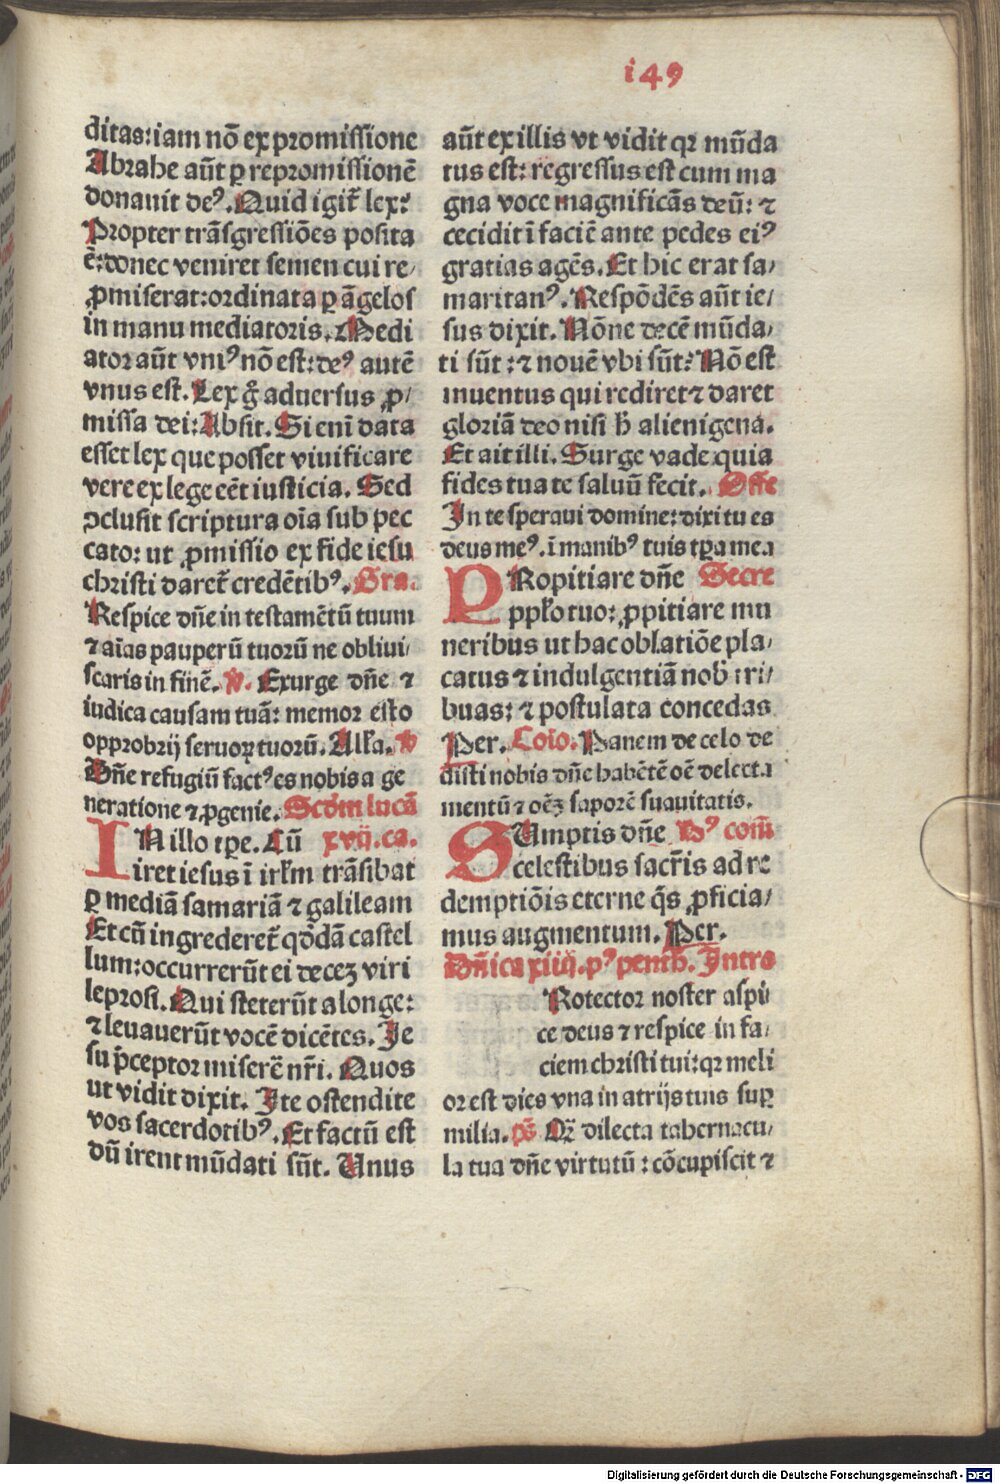 i49
ditas: iam nō ex promissione
Abrahe aūt ꝑ repromissionē
donauit deꝰ. Quid igit᷑ lex:
Propter trāsgressiōes posita
ē: donec veniret semen cui re⸗
ꝓmiserat: ordinata ꝑ āgelos
in manu mediatoris. Medi
ator aūt vniꝰ nō est: deꝰ autē
vnus est. Lex g̊ aduersus ꝓ⸗
missa dei: Absit. Si enī data
esset lex que posset viuificare
vere ex lege eēt iusticia. Sed
ꝯclusit scriptura oīa sub pec
cato: ut ꝓmissio ex fide iesu
christi daret᷑ credētibꝰ. Gra.
Respice dn̄e in testamētū tuum
⁊ aīas pauperū tuorū ne obliui⸗
scaris in finē. V̄. Exurge dn̄e ⁊
iudica causam tuā: memor esto
opprobrij seruoꝝ tuorū. Alľa. V̄
Dn̄e refugiū factꝰ es nobis a ge
neratione ⁊ ꝓgenie. Scdm lucā
IN illo tꝑe. Cū xvij. ca.
iret iesus ī irľm trāsibat
ꝑ mediā samariā ⁊ galileam
Et cū ingrederet᷑ qōdā castel
lum: occurrerūt ei deceꝫ viri
leprosi. Qui steterūt a longe:
⁊ leuauerūt vocē dicētes. Je
su p̄ceptor miserē nr̄i. Quos
ut vidit dixit. Ite ostendite
vos sacerdotibꝰ. Et factū est
dū irent mūdati sūt. Unus
aūt ex illis vt vidit qꝛ mūda
tus est: regressus est cum ma
gna voce magnificās deū: ⁊
cecidit ī faciē ante pedes eiꝰ
gratias agēs. Et hic erat sa⸗
maritanꝰ. Respōdēs aūt ie⸗
sus dixit. Nōne decē mūda⸗
ti sūt: ⁊ nouē vbi sūt: Nō est
inuentus qui rediret ⁊ daret
gloriā deo nisi h̄ alienigena.
Et ait illi. Surge vade quia
fides tua te saluū fecit. Offe
In te speraui domine: dixi tu es
deus meꝰ. ī manibꝰ tuis tꝑa mea
PRopitiare dn̄e Secre
ppľo tuo: ꝓpitiare mu
neribus ut hac oblatiōe pla⸗
catus ⁊ indulgentiā nob̄ tri⸗
buas: ⁊ postulata concedas
Per. Coīo. Panem de celo de
disti nobis dn̄e habētē oē delecta
mentū ⁊ oēꝫ saporē suauitatis.
SUmptis dn̄e Pꝰ com̄
celestibus sacr̄is ad re
demptiōis eterne q̄s ꝓficia⸗
mus augmentum. Per.
Dn̄ica xiiij. pꝰ penth. Intro
Rotector noster aspi
ce deus ⁊ respice in fa⸗
ciem christi tui: qꝛ meli
or est dies vna in atrijs tuis suꝑ
milia. pš Qꝫ dilecta tabernacu⸗
la tua dn̄e virtutū: cōcupiscit ⁊
Digitalisierung gefördert durch die Deutsche Forschungsgemeinschaft - DFG